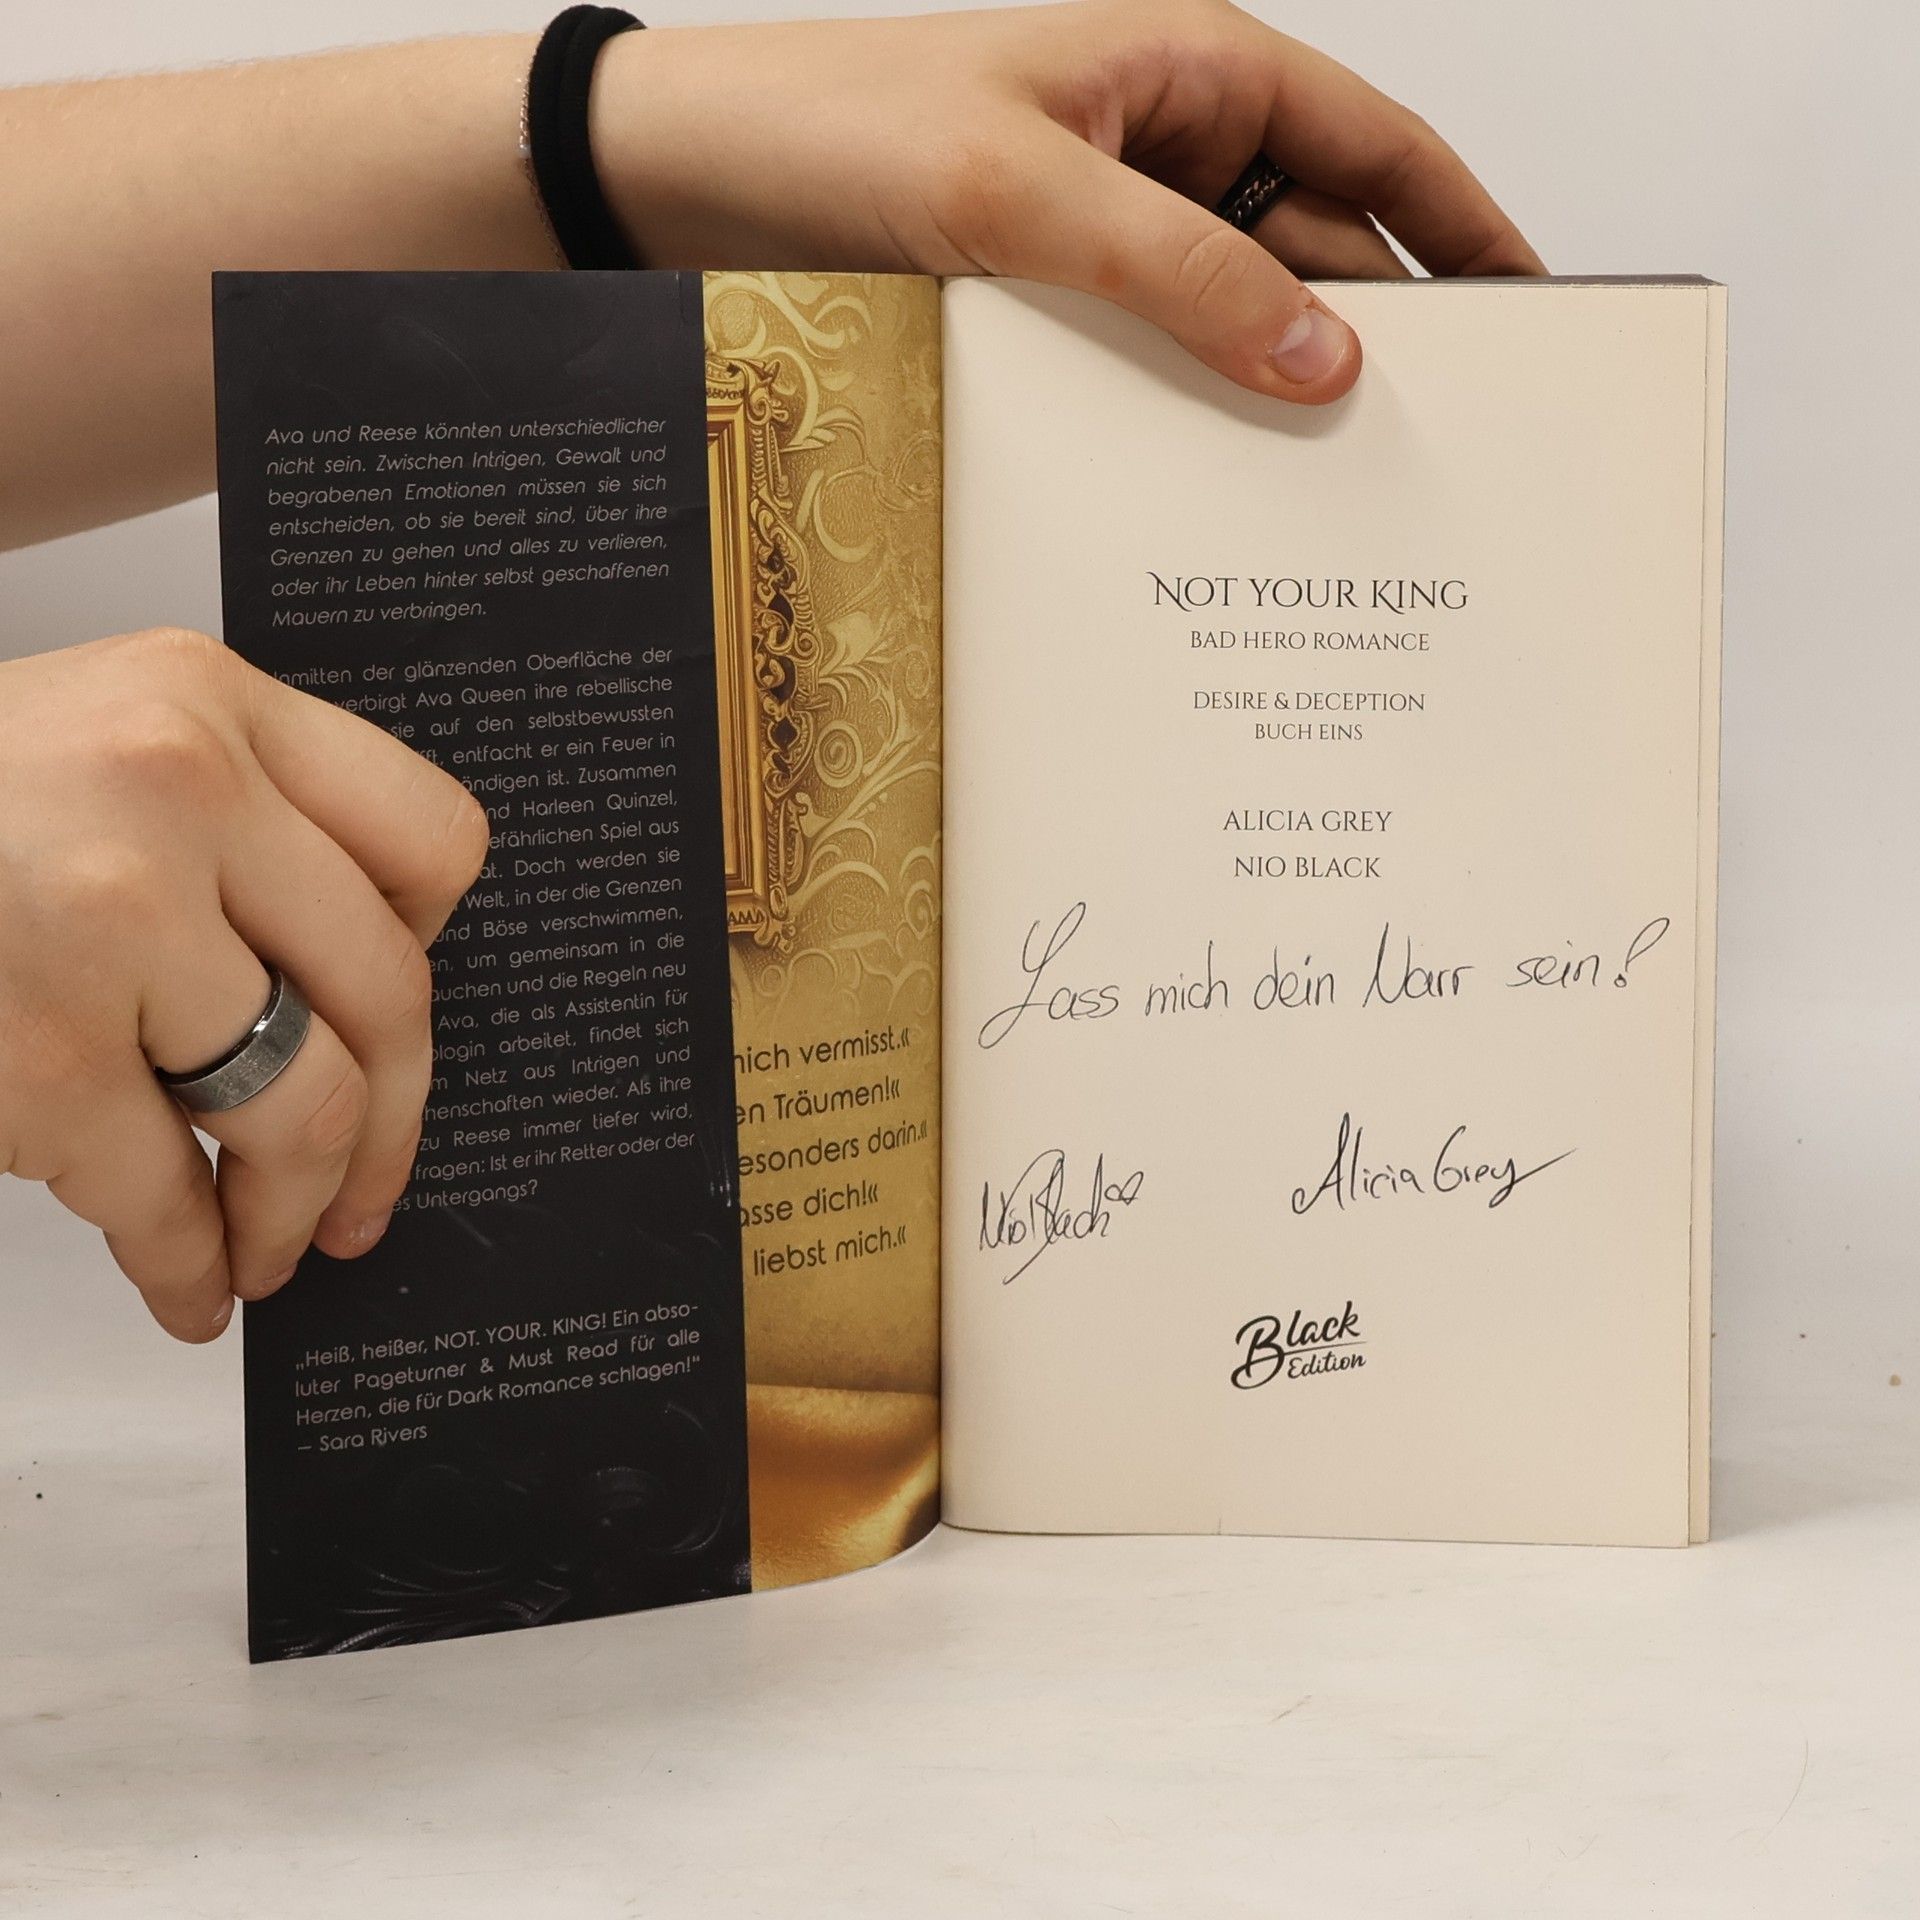 Ava und Reese könnten unterschiedlicher
nicht sein. Zwischen Intrigen, Gewalt und
begrabenen Emotionen müssen sie sich
entscheiden, ob sie bereit sind, über ihre
Grenzen zu gehen und alles zu verlieren,
oder ihr Leben hinter selbst geschaffenen
Mauern zu verbringen.
der glänzenden Oberfläche der
verbirgt Ava Queen ihre rebellische
sie auf den selbstbewussten
entfacht er ein Feuer in
ist. Zusammen
Harleen Quinzel,
Spiel aus
Doch werden sie
Welt, in der die Grenzen
und Böse verschwimmen,
um gemeinsam in die
und die Regeln neu
Ava, die als Assistentin für
arbeitet, findet sich
Netz aus Intrigen und
wieder. Als ihre
zu Reese immer tiefer wird,
fragen: Ist er ihr Retter oder der
Untergangs?
„Heiß, heißer, NOT. YOUR. KING! Ein abso-
luter Pageturner & Must Read für alle
Herzen, die für Dark Romance schlagen!"
– Sara Rivers
mich vermisst.«
Träumen!«
besonders darin.«
dich!«
liebst mich.«
NOT YOUR KING
BAD HERO ROMANCE
DESIRE & DECEPTION
BUCH EINS
ALICIA GREY
NIO BLACK
Lass mich dein Narr sein!
Nio Black Alicia Grey
Black
Edition